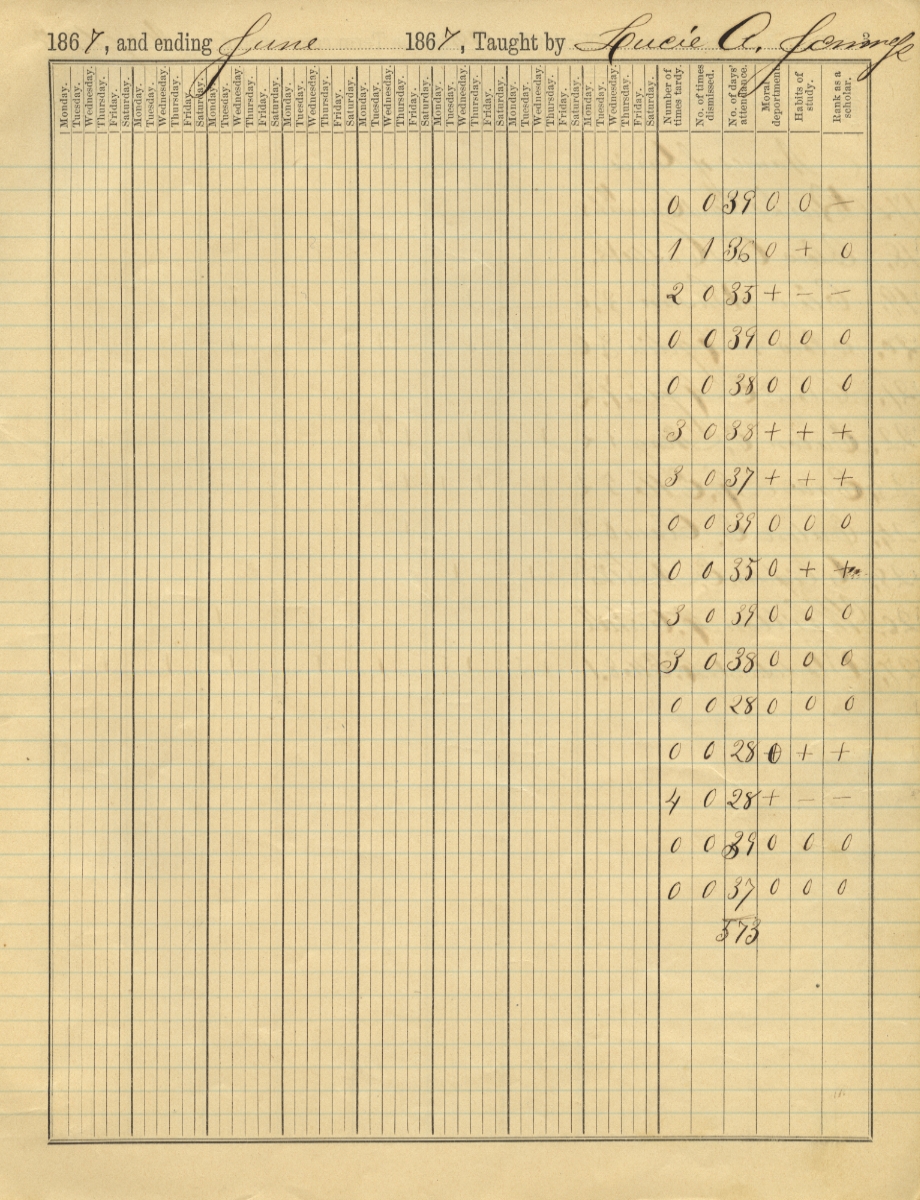 1867, and ending June 1867, Taught by Lucie A.
Monday. Tuesday. Wednesday. Thursday. Friday. Saturday. Monday. Tuesday. Wednesday. Thursday. Friday. Saturday. Monday. Tuesday. Wednesday. Thursday. Friday. Saturday. Monday. Tuesday. Wednesday. Thursday. Friday. Saturday. Monday. Tuesday. Wednesday. Thursday. Friday. Saturday. Monday. Tuesday. Wednesday. Thursday. Friday. Saturday. Monday. Tuesday. Wednesday. Thursday. Friday. Saturday. Monday. Tuesday. Wednesday. Thursday. Friday. Saturday. Number of times tardy. No. of times dismissed. No. of days' attendance. Moral deportment. Habits of study. Rank as a scholar.
0 0 39 0 0 +
1 1 36 0 + 0
2 0 35 + – –
0 0 39 0 0 0
0 0 38 0 0 0
3 0 38 + + +
3 0 37 + + +
0 0 39 0 0 0
0 0 35 0 + +
3 0 39 0 0 0
3 0 38 0 0 0
0 0 28 0 0 0
0 0 28 0 + +
4 0 28 + – –
0 0 39 0 0 0
0 0 37 0 0 0
573